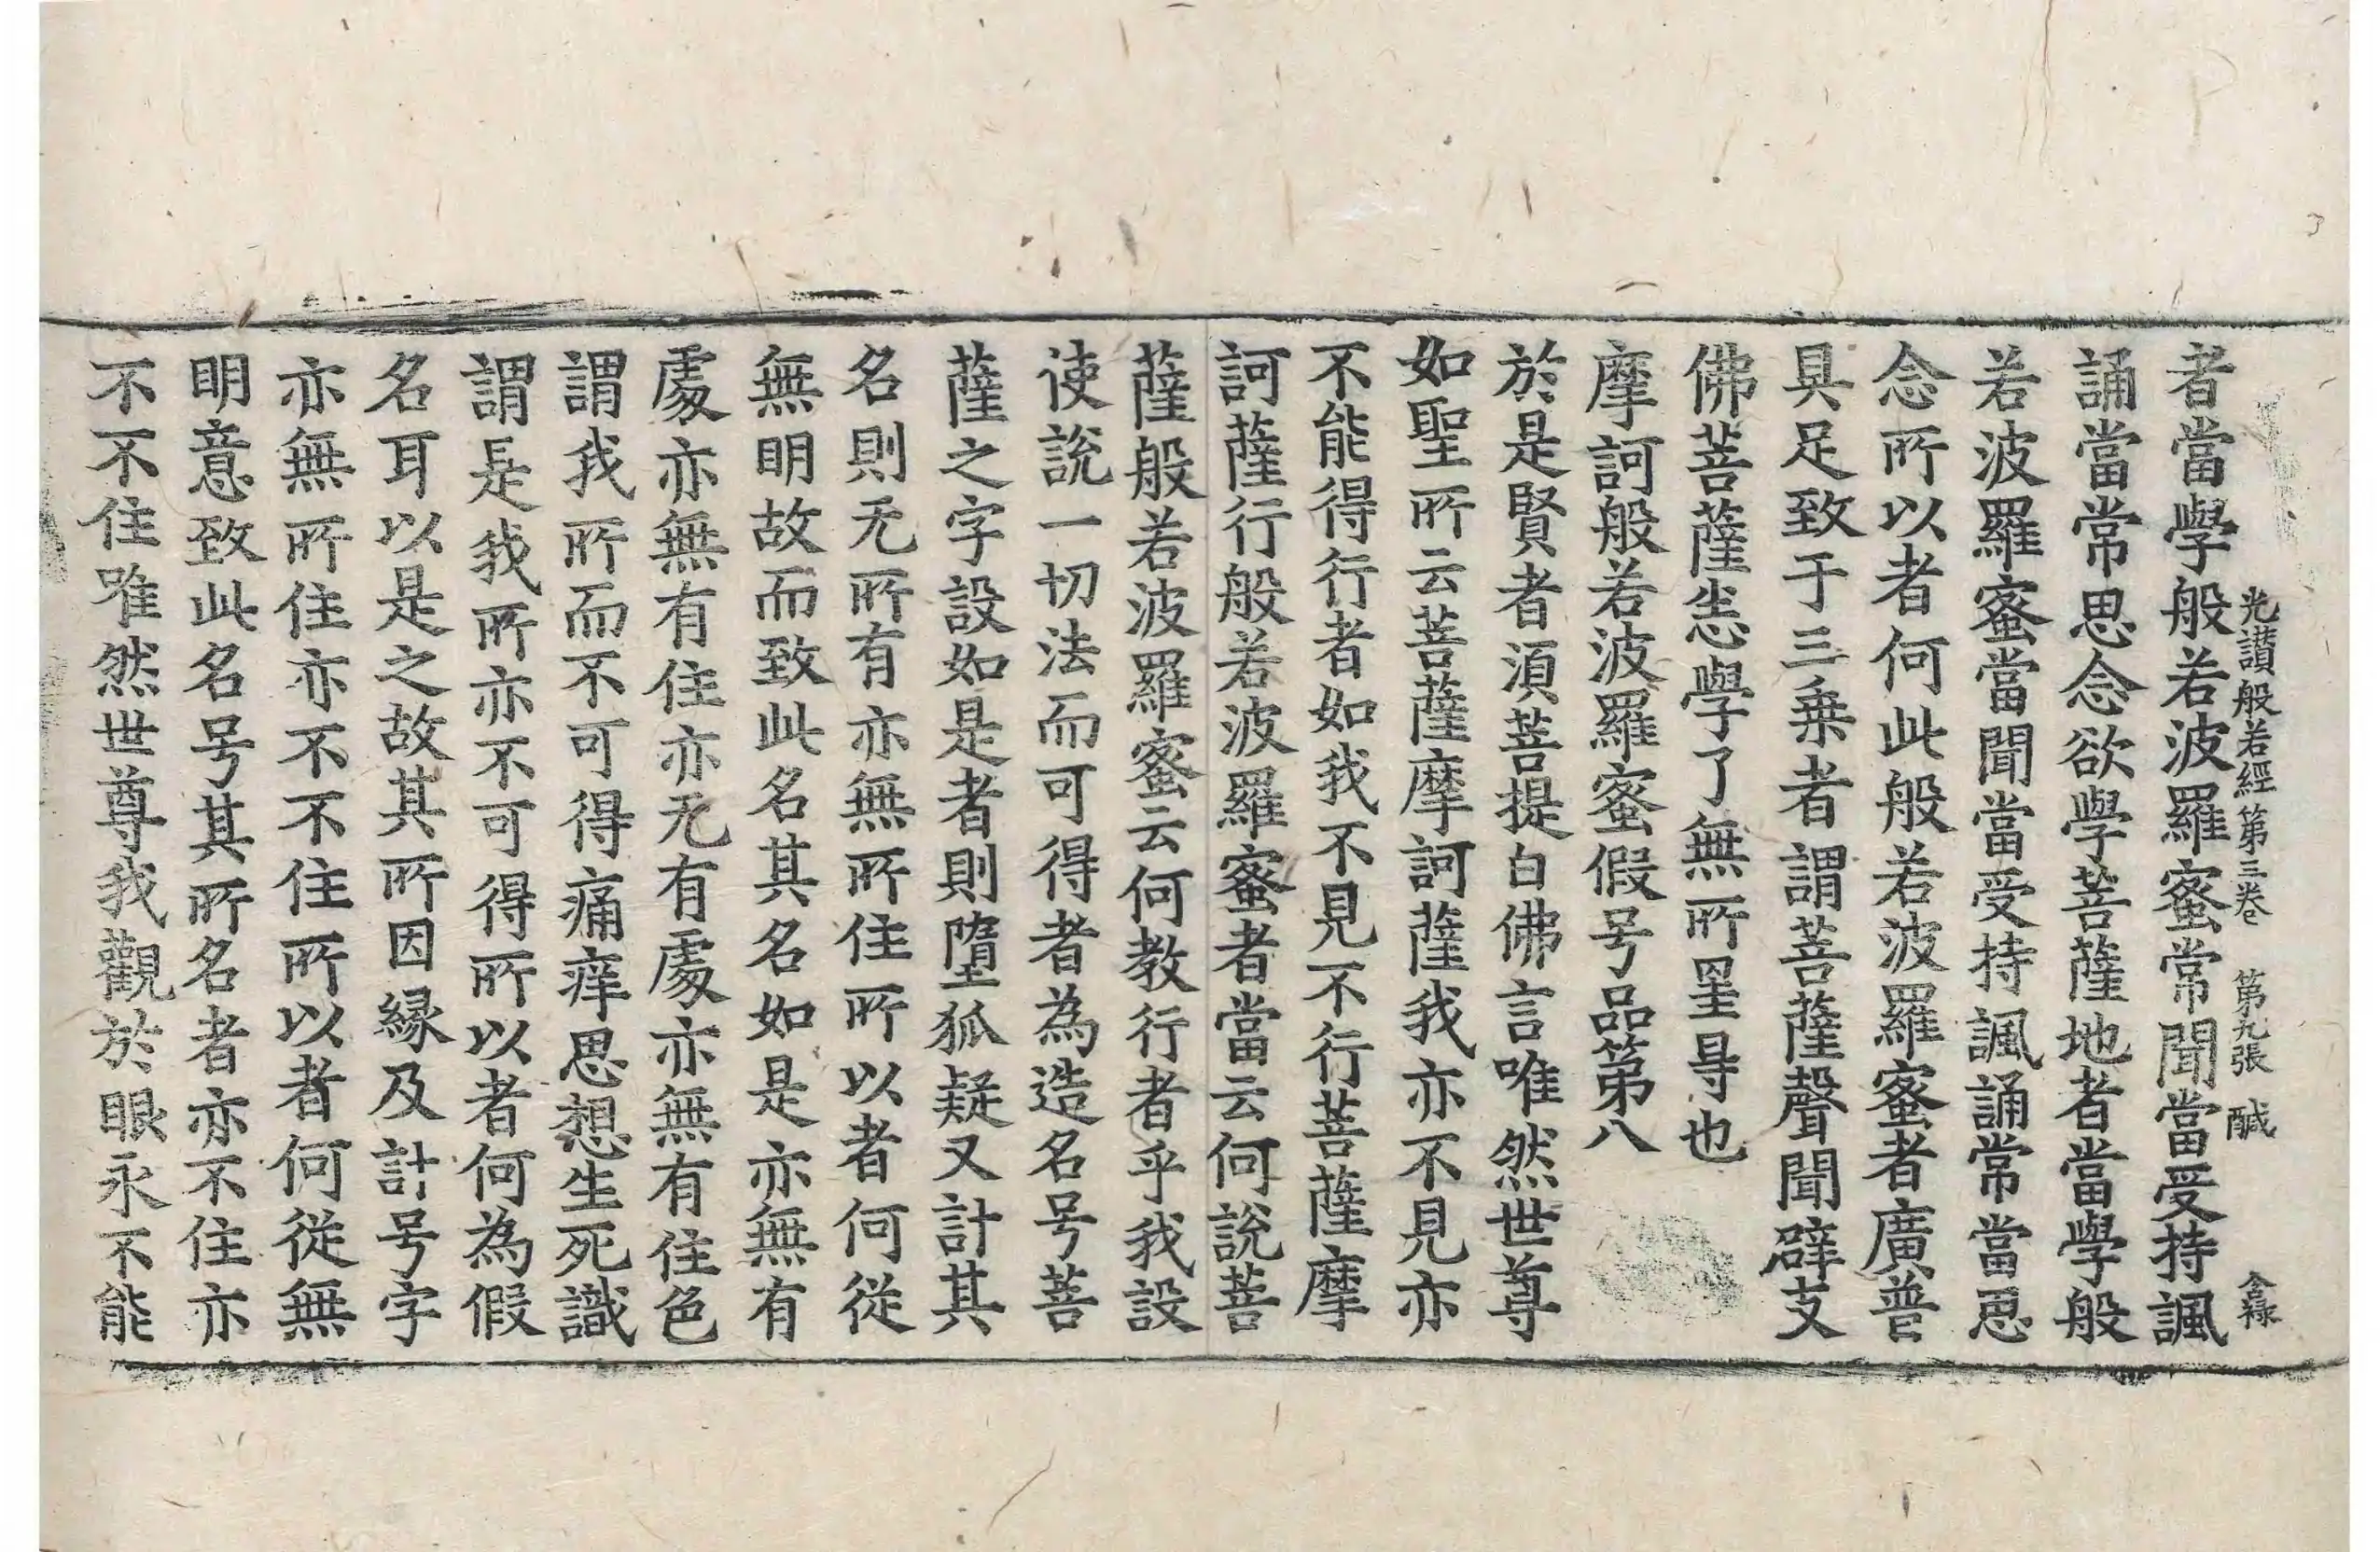 光讚般若經第三卷 第九張 醎 金祿
者當學般若波羅蜜常聞當受持諷
誦當常思念欲學菩薩地者當學般
若波羅蜜當聞當受持諷誦常當思
念所以者何此般若波羅蜜者廣普
具足致于三乗者謂菩薩聲聞辟支
佛菩薩悉學了無所罣㝵也
摩訶般若波羅蜜假号品第八
於是賢者湏菩提白佛言唯然世尊
如聖所云菩薩摩訶薩我亦不見亦
不能得行者如我不見不行菩薩摩
訶薩行般若波羅蜜者當云何說菩
薩般若波羅蜜云何教行者乎我設
使說一切法而可得者為造名号菩
薩之字設如是者則墮狐疑又計其
名則无所有亦無所住所以者何從
無明故而致此名其名如是亦無有
處亦無有住亦无有處亦無有住色
謂我所而不可得痛痒思想生死識
謂是我所亦不可得所以者何為假
名耳以是之故其所因緣及計号字
亦無所住亦不不住所以者何從無
明意致此名号其所名者亦不住亦
不不住唯然世尊我觀於眼永不能